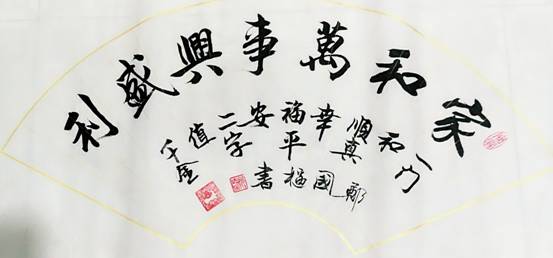 家和萬事興盛利
一门
和
順真
幸
福平
安
二字
值
千金
國
書